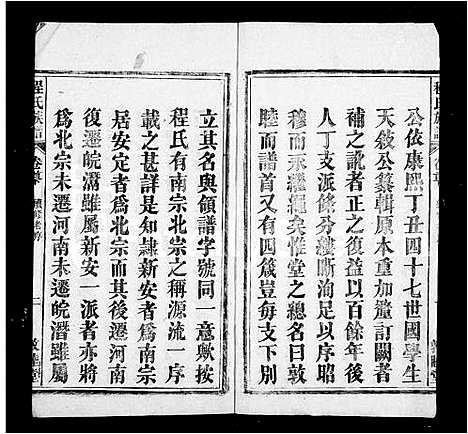 公依康熙丁丑四十七世國學生
天敘公纂輯原本重加釐訂闕者
補之訛者正之復益以百餘年後
人丁支派條分縷晰洵足以序昭
穆而示纚纚矣惟堂之總名曰敦
睦而者四箴豈每支下別
立其名與領譜字號同一意歟按
程氏有南宗北宗之稱源流一序
載之甚詳是知隷新安者爲南宗
居安定者爲北宗而其後遷河南
復遷皖潛雖屬新安一派者亦將
爲北宗未遷河南未遷皖潛雖屬
程氏族譜
卷首
二
敦睦堂